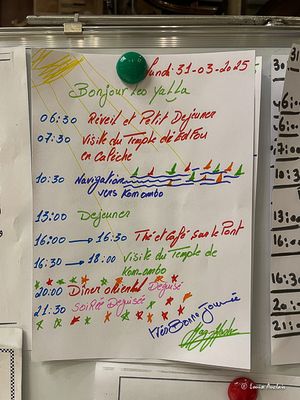 Lundi 31-03-2025
Bonjour Les Yalla
06:30 Réveil et Petit Dejeuner
07:30 Visite du Temple de Edfou
en Calèche
10:30 Navigation
vers Komombo
13:00 Dejeuner
16:00 → 16:30 Thé et Café sur le Pont
16:30 → 18:00 Visite du Temple de
Komombo
20:00 Diner oriental Deguisé
21:30 Soirée Deguisée
Très Bonne Journée
© Louis Auclair